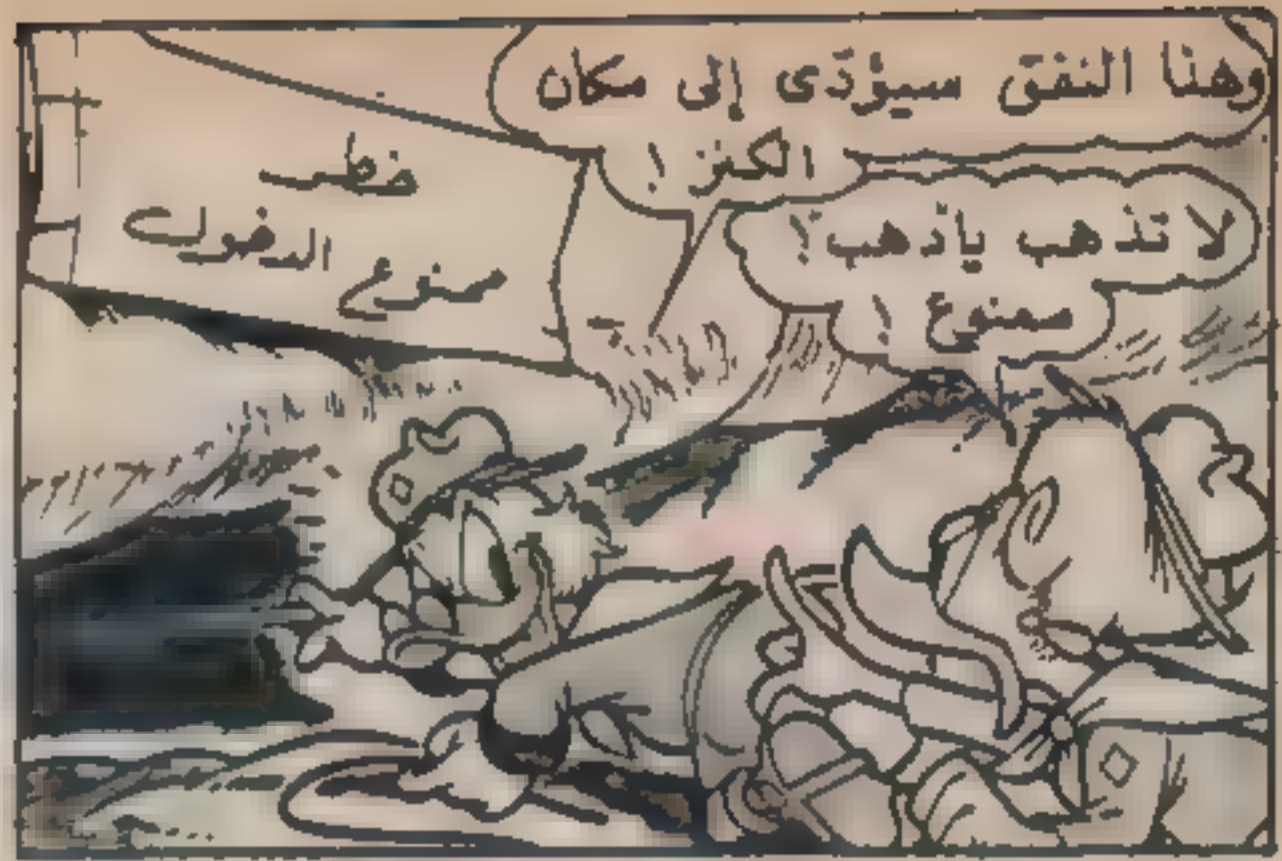 وهنا النفق سيؤدّى إلى مكان
الكنز !
لا تذهب يادهب ؟
ممنوع !
خطر
ممنوع الدخول